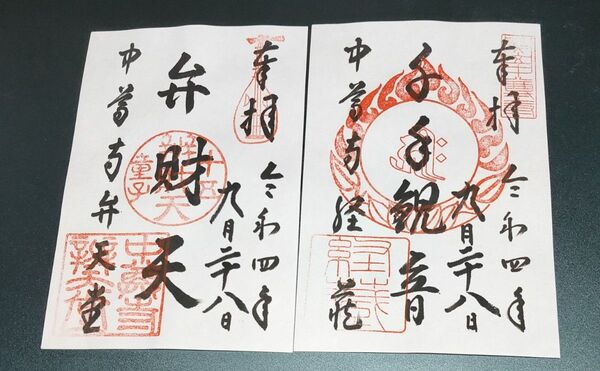 奉拝
令和四年
九月二十八日
千手観音
中尊寺経蔵
経蔵
奉拝
令和四年
九月二十八日
弁財天
中尊寺弁天堂
童子